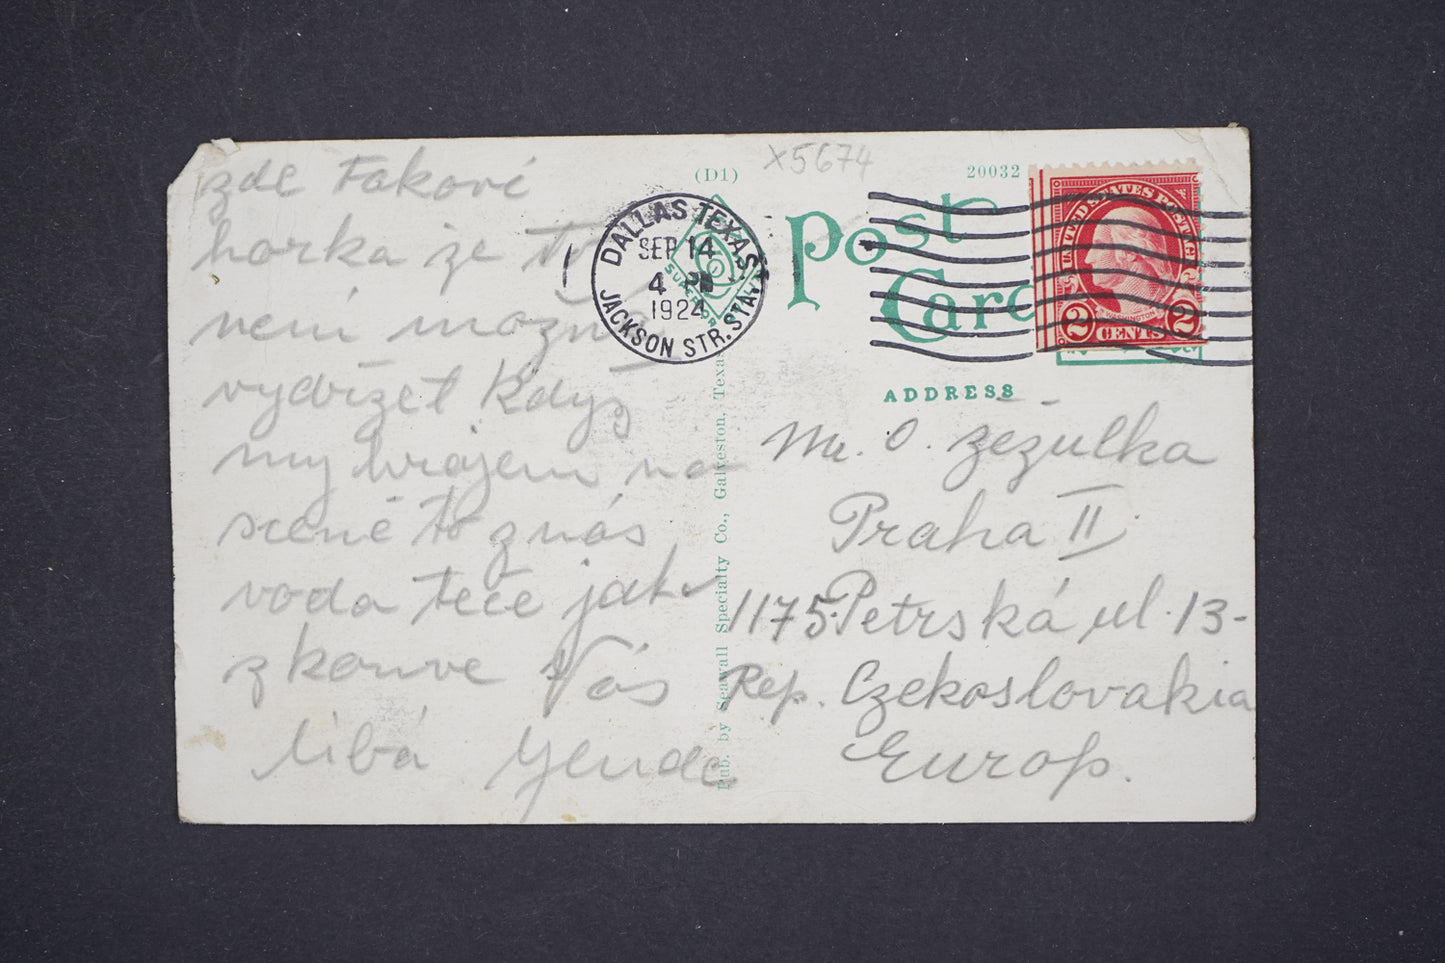 zde takové
horka že to
není možno
vydržet když
my hrajem na
sceně to z nás
voda teče jak
z konve Vás
líbá Jenda
(D1)
X5674
20032
Post
Card
DALLAS, TEXAS
SEP 14
4 PM
1924
JACKSON STR. STA.
SUPERIOR
UNITED STATES POSTAGE
WASHINGTON
2 CENTS 2
ADDRESS
Mr. O. Zezulka
Praha II.
1175 Petrská ul. 13-
Rep. Czekoslovakia
Europ.
Pub. by Seawall Specialty Co., Galveston, Texas